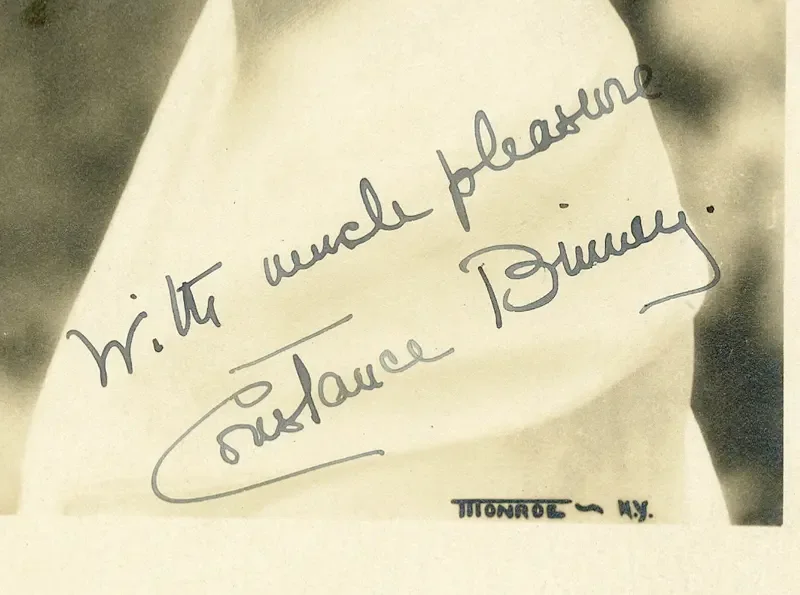 With much pleasure
Constance Binney.
MONROE ~ N.Y.